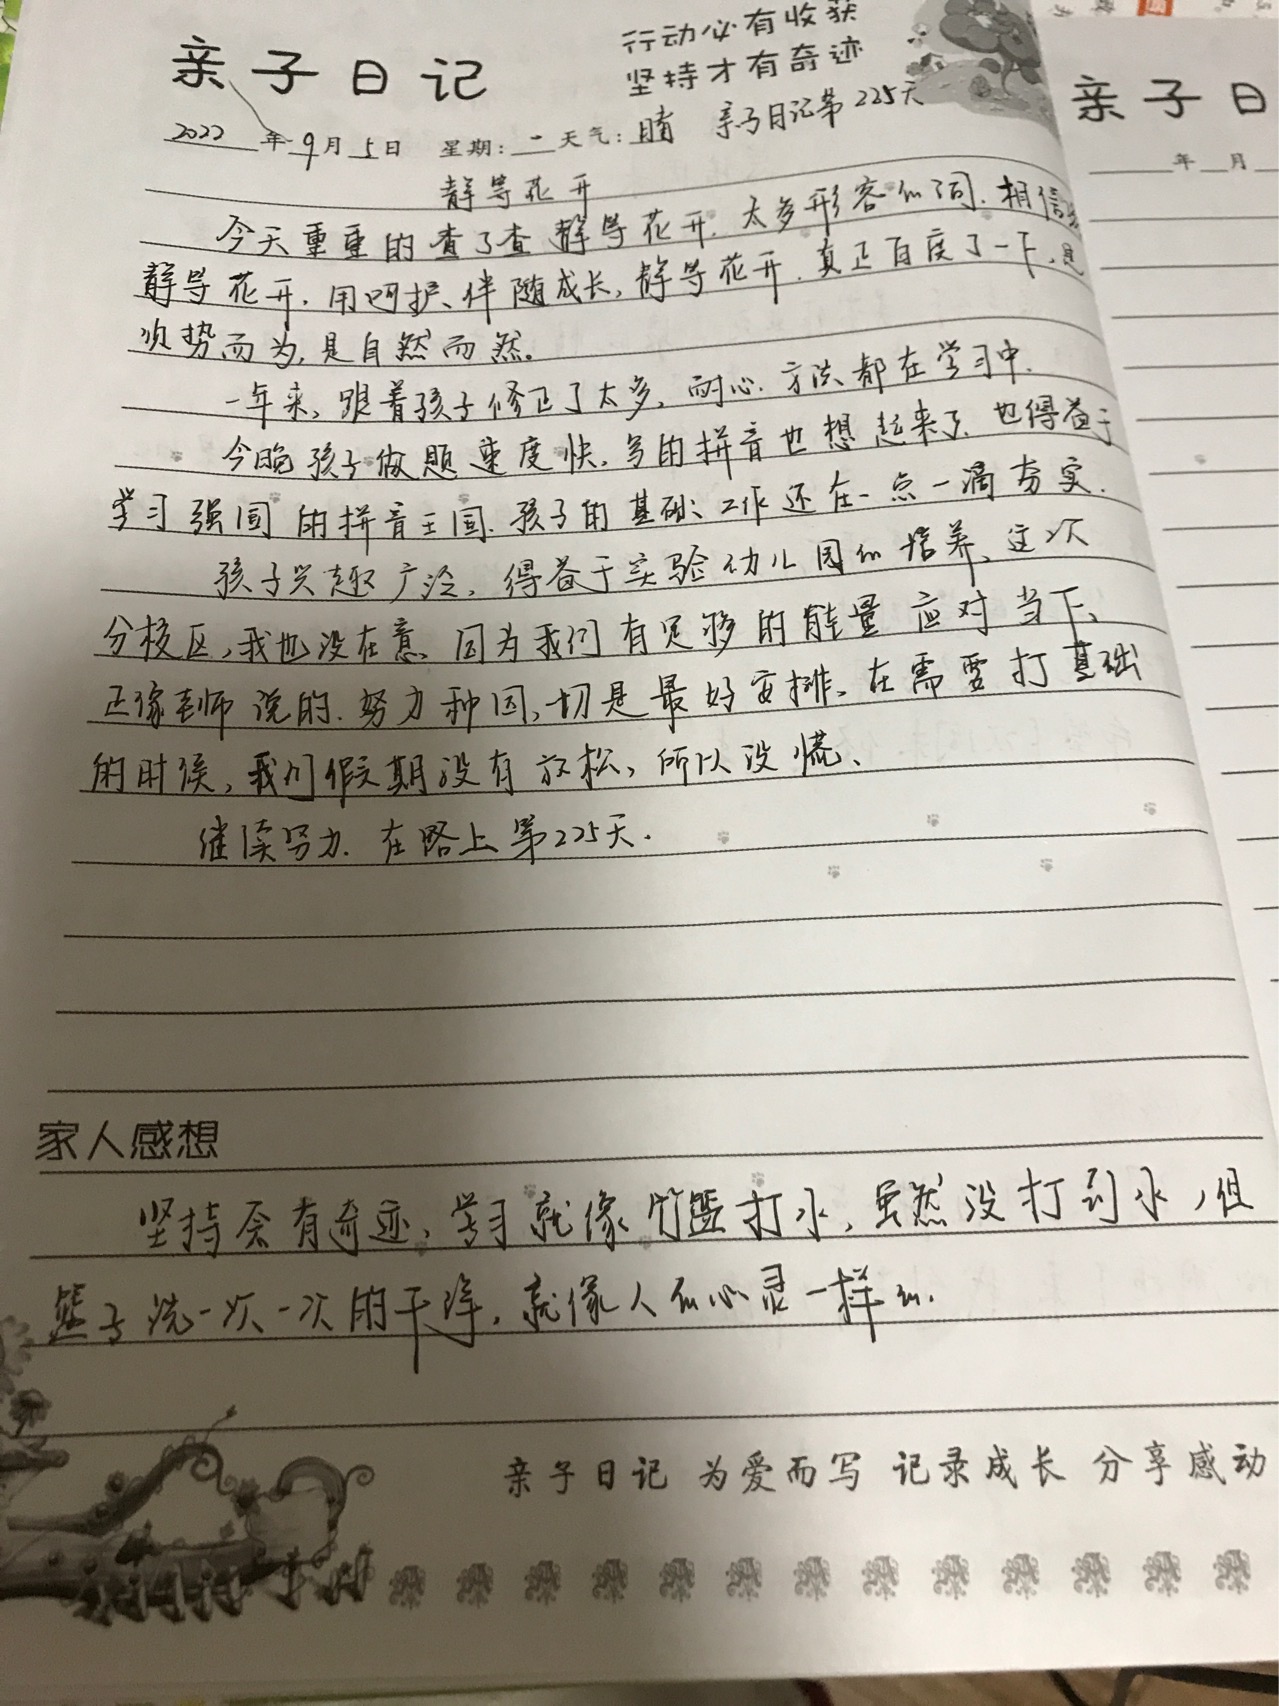 亲子日记
行动必有收获
坚持才有奇迹
2022年9月5日 星期:一 天气:晴 亲子日记第225天
静等花开
今天重重的查了查静等花开.太多形容的词.相信
静等花开.用呵护、伴随成长,静等花开.真正百度了一下,是
顺势而为,是自然而然。
一年来,跟着孩子修正了太多,耐心.方法都在学习中.
今晚孩子做题速度快.多的拼音也想起来了.也得益于
学习强国的拼音王国.孩子的基础工作还在一点一滴夯实.
孩子兴趣广泛,得益于实验幼儿园的培养、这次
分校区,我也没在意、因为我们有足够的能量应对当下、
正像老师说的.努力种因,一切是最好安排、在需要打基础
的时候,我们假期没有放松,所以没慌、
继续努力.在路上第225天.
家人感想
坚持会有奇迹,学习就像竹篮打水,虽然没打到水,但
篮子洗一次一次的干净,就像人的心灵一样的.
亲子日记 为爱而写 记录成长 分享感动
亲子日
年 月